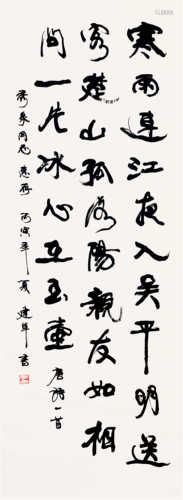 寒雨連江夜入吴平明送
客楚山孤洛陽親友如相
問一片冰心在玉壺 唐詩一首
同志惠存 丙寅年夏 建 書